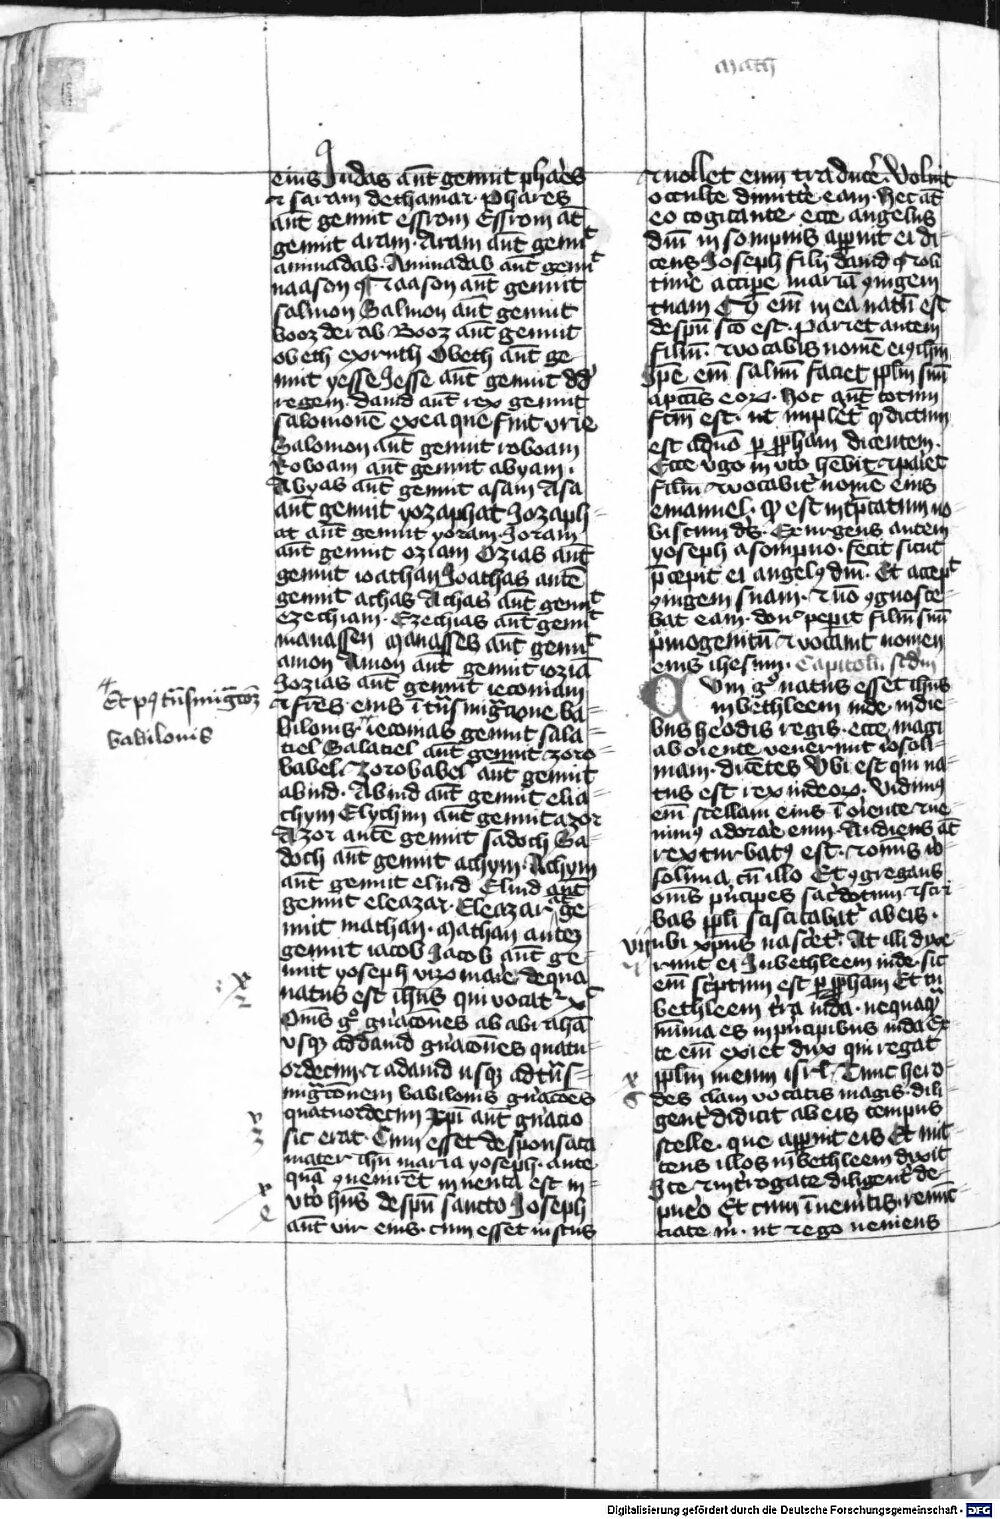 math
eius Judas aut̄ genuit phares
⁊ saram de thamar. Phares
aut̄ genuit essrom Essrom at̄
genuit aram. Aram aut̄ genuit
aminadab. Aminadab aut̄ genuit
naason Naason aut̄ genuit
salmon Salmon aut̄ genuit
booz de rab Booz aut̄ genuit
obeth ex ruth Obeth aut̄ ge
nuit yesse Jesse aut̄ genuit dd̄
regem. david aut̄ rex genuit
salomonē ex ea que fuit vrie
Salomon aut̄ genuit roboam
Roboam aut̄ genuit abyam.
Abyas aut̄ genuit asam Asa
aut̄ genuit yozaphat Jozaph
at aut̄ genuit yoram. Joram
aut̄ genuit oziam Ozias aut̄
genuit ioathan Joathas autē
genuit achas Achas aut̄ genuit
ezechiam. Ezechias aut̄ genuit
manassen Manasses aut̄ genuit
amon Amon aut̄ genuit ioziā
Jozias aut̄ genuit ieconiam
⁊ fr̄es eius ī tn̄smigr̄cione ba
bilonis. ieconias genuit sala
tiel Salatiel aut̄ genuit zoro
babel. Zorobabel aut̄ genuit
abiud. Abiud aut̄ genuit elia
chym Elychim aut̄ genuit azor
Azor autē genuit sadoch Sa
doch aut̄ genuit achym. Achym
aut̄ genuit eliud Eliud aut̄
genuit eleazar. Eleazar at̄ ge
nuit mathan. Mathan autez
genuit iacob Jacob aut̄ ge
nuit yoseph viro marie de qua
natus est ih̄us qui vocat᷑ xc̄
Om̄s gͦ gn̄acōnes ab abrahā
vsqȝ ad david gn̄acōnes quatu
ordecim ⁊ a david usqȝ ad tn̄s
migr̄cōnem babilonis gn̄acōes
quatuordecim Xpī aut̄ gn̄acio
sic erat. Cum esset desponsata
mater ih̄u maria yoseph. ante
quā ꝯuenirēt inventa est in
vt̄o hn̄s de spū sancto Joseph
aut̄ vir eius. cum esset iustus
Et pꝰ tn̄smigr̄cōꝫ
babilonis
⁊ nollet eum traducē. Voluit
occulte dimittē eam. Hec at̄
eo cogitante. ecce angelus
dn̄i in sompnis apparuit ei di
cens Joseph filii david noli
timē accipe mariā ꝯiugem
tuam Qͩ em̄ in ea natū est
de spū sc̄o est. Pariet autem
filiū. ⁊ vocabis nomē eiꝰ ih̄m
Ipē em̄ salvū faciet pplm̄ suū
a pctīs eoꝝ. Hoc aut̄ totum
fc̄m est. ut implēt᷑ qͩ dictum
est a dn̄o ꝑ ꝓph̄am dicentem.
Ecce v̄go in vt̄o hēbit ⁊ pariet
filiū ⁊ vocabit᷑ nomē eius
emanuel. qͩ est int̄p̄tatum no
biscum ds̄. Exurgens autem
yoseph a sompno. fecit sicut
p̄cepit ei angelꝰ dn̄i. Et accepit
ꝯiugem suam. ⁊ nō ꝯgnosce
bat eam. donec peperit filiū suū
p̄mogenitū ⁊ vocavit nomen
eius ihesum. Capitolū scdm̄
Cum gͦ natus esset ih̄us
in bethleem iude. in die
bus herodis regis. ecce magi
ab oriente venerunt iosoli
mam. dicentes Vbi est qui na
tus est rex iudeoꝝ. Vidimꝰ
em̄ stellam eius ī oriente ⁊ ve
nimꝰ adorare eum. Audiens at̄
rex turbatꝰ est. ⁊ om̄is io
solima. cū illo Et ꝯgregans
om̄s pn̄cipes sac̄dotum ⁊ scri
bas ppli sciscitabat᷑ ab eis.
ubi xp̄us nascēt᷑. At illi dixe
runt ei In bethleem iude. sic
em̄ sc̄ptum est ꝑ ꝓph̄am Et tu
bethleem t̄ra iuda. nequaqꝫ
minima es in pn̄cipibus iuda Ex
te em̄ exiet dux qui regat
pplm̄ meum isr̄l. Tunc hero
des clam vocatis magis. dili
gent̄ didicit ab eis tempus
stelle. que apparuit eis Et mit
tens illos in bethleem dixit
Ite ⁊ int̄rogate diligent̄ de
puero Et cum ī veneritis. renūc
ciate m̄. ut ⁊ ego veniens
Digitalisierung gefördert durch die Deutsche Forschungsgemeinschaft - DFG